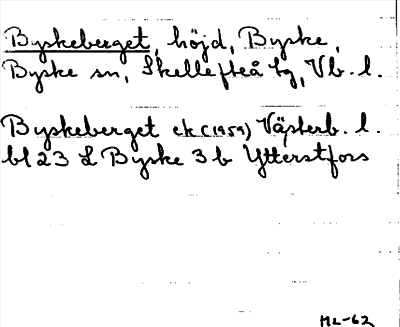 Byskeberget, höjd, Byske,
Byske sn, Skellefteå tg, Vb. l.
Byskeberget ek (1959) Västerb. l.
bl 23 L Byske 3 b Ytterstfors
ML-62